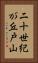 二十世紀
が丘戸山